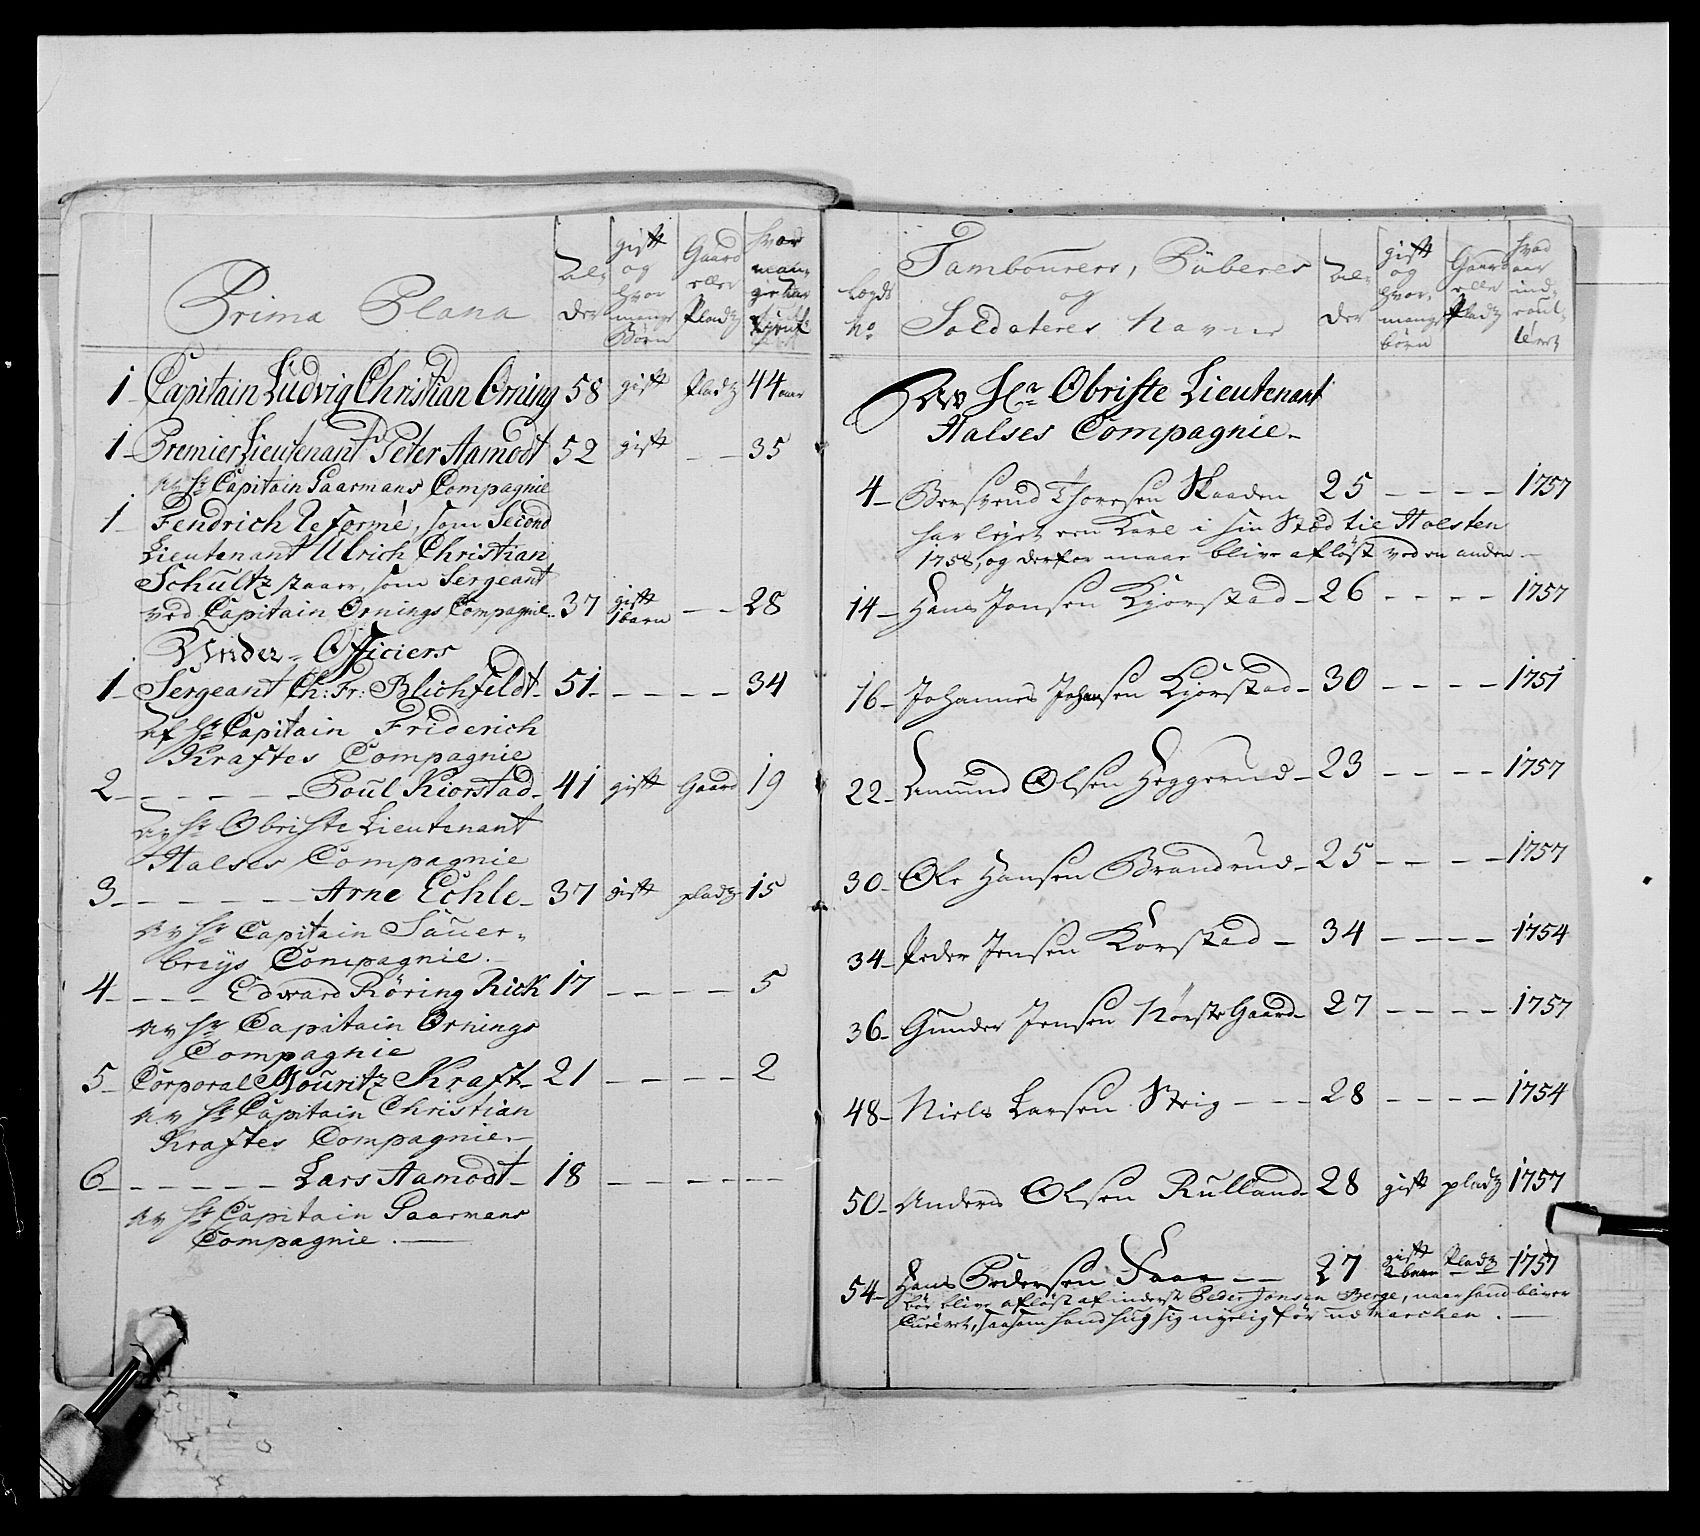 Prima Plana
Al-
der
gift
og
hvor
mange
Börn
Gaard
eller
Pladz
hvor
man-
1 Capitain Ludvig Christian Orning 58 gift Pladz 44 aar
1 Premier Lieutenant Peter Aamodt 52 gift - - 35
av Hr Capitain Paarmans Compagnie
1 Fendrich Reformé, som Second
Lieutenant Ulrich Christian
Schültz staaer, som Sergeant
ved Capitain Ornings Compagnie 37 gift 1 barn - - 28
Under-Officiers
1 Sergeant Ch: Fr: Blichfeldt 51 - - - - 34
af Hr Capitain Friderich
Kraftes Compagnie
2 - - - - - Poul Kiorstad 41 gift Gaard 19
av Hr Obriste Lieutenant
Halses Compagnie
3 - - - - - Arne Echle 37 gift pladz 15
av Hr Capitain Saüer-
breys Compagnie.
4 - - - - Edward Röring Rick 17 - - - - 5
av Hr Capitain Ornings
Compagnie
5 Corporal Mouritz Kraft 21 - - - - 2
av Hr Capitain Christian
Kraftes Compagnie
6 - - - - - Lars Aamodt 18 - - - - -
av Hr Capitain Paarmans
Compagnie.
Lægds
No
Tambourers, Piiberes
og
Soldateres Navne
Al-
der
gift
og
hvor
mange
börn
Gaard
elle
Pladz
hvad
aar
ind-
roul-
léret
Av Hr Obriste Lieutenant
Halses Compagnie
4 Bersvend Thoresen Skaaden 25 - - - - 1757
har lejet een Karl i sin Sted til Holsten
1758, og derfor maae blive aflöst ved en anden
14 Hans Jonsen Kjorstad 26 - - - - 1757
16 Johannes Johansen Kjorstad 30 - - - - 1751
22 Amund Olsen Heggerud 23 - - - - 1757
30 Ole Hansen Brandrud 25 - - - - 1757
34 Peder Jensen Korstad 34 - - - - 1754
36 Gunder Jensen NörsteGaard 27 - - - - 1757
48 Niels Larsen Stig - - - 28 - - - - 1754
50 Anders Olsen Rulland 28 gift pladz 1757
54 Hans Pedersen Faar - - 27 gift 2 barn Pladz 1757
bör blive aflöst af inderst Peder Jonsen Berge, naar hand bliver
Cureret, saasom hand hug sig nyelig för udmarchen.